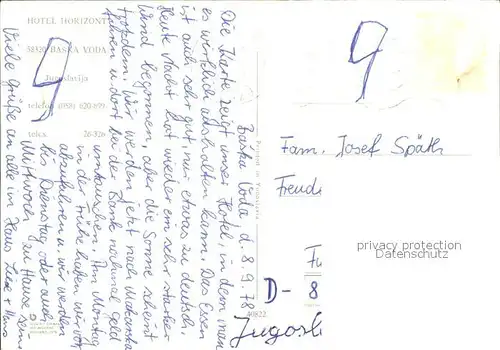 HOTEL HORIZONT
58320 BAŠKA VODA
Jugoslavija
telefon (058) 620-699
telex. 26-326
Baška Voda d. 8.9.78
Die Karte zeigt unser Hotel, in dem man
es wirklich aushalten kann. Das Essen
ist auch sehr gut, nur etwas zu deutsch.
Heute Nacht hat wieder ein sehr starker
Wind begonnen, aber die Sonne scheint
trotzdem. Wir werden jetzt nach Makarska
fahren u. dort bei der Bank nochmal Geld
umtauschen. Am Montag
in der Frühe haben wir vor
abzufahren u. wir werden
bis Dienstag oder auch
Mittwoch zu Hause sein.
Viele Grüße an alle im Haus
Printed in Yugoslavia
40822
9
9
Fam. Josef Späth
Freud
D- 8
Jugosl
privacy protection
DELCAMPE.NET